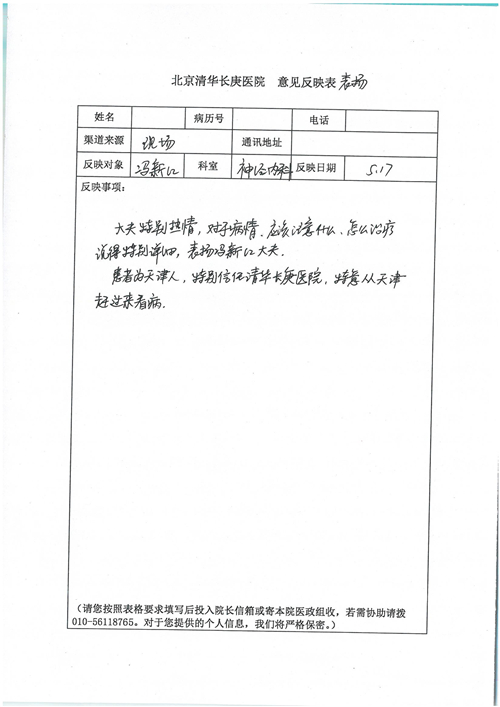 北京清华长庚医院 意见反映表 表扬
姓名 病历号 电话
渠道来源 现场 通讯地址
反映对象 冯新江 科室 神经内科 反映日期 5.17
反映事项:
大夫特别热情,对于病情、应该注意什么、怎么治疗
说得特别详细,表扬冯新江大夫.
患者为天津人,特别信任清华长庚医院,特意从天津
赶过来看病.
(请您按照表格要求填写后投入院长信箱或寄本院医政组收,若需协助请拨
010-56118765。对于您提供的个人信息,我们将严格保密。)